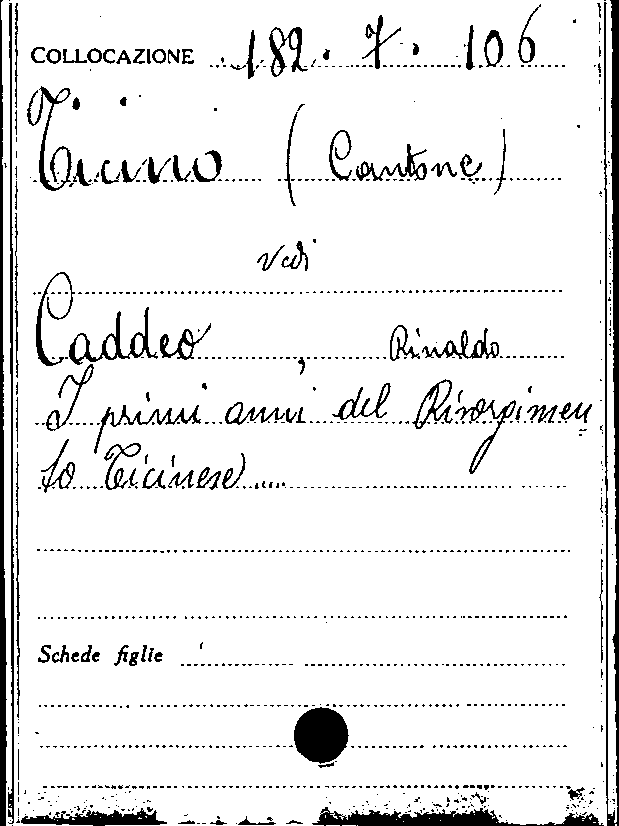 COLLOCAZIONE 182. 7. 106
Ticino (Cantone)
Vedi
Caddeo, Rinaldo
I primi anni del Risorgimen
to Ticinese.....
Schede figlie